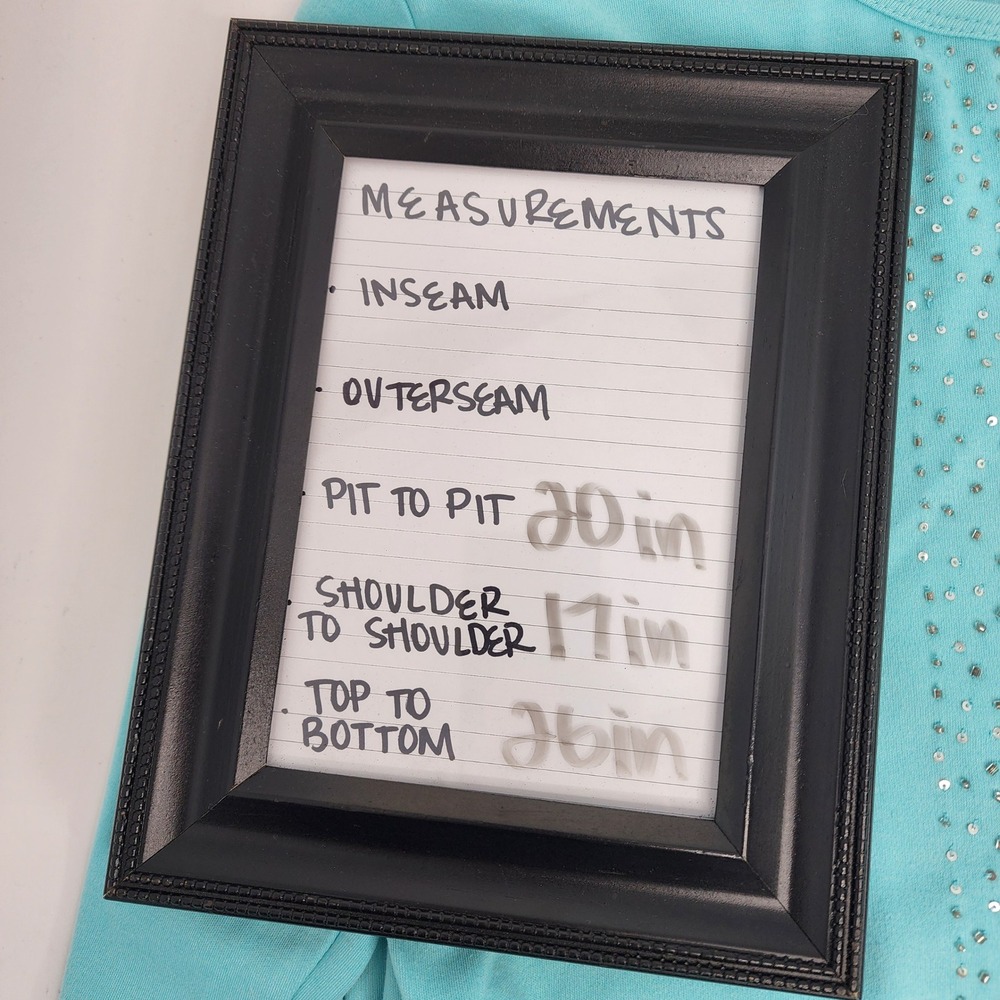 MEASUREMENTS
INSEAM
OUTERSEAM
PIT TO PIT 20 in
SHOULDER
TO SHOULDER 17 in
TOP TO
BOTTOM 26 in